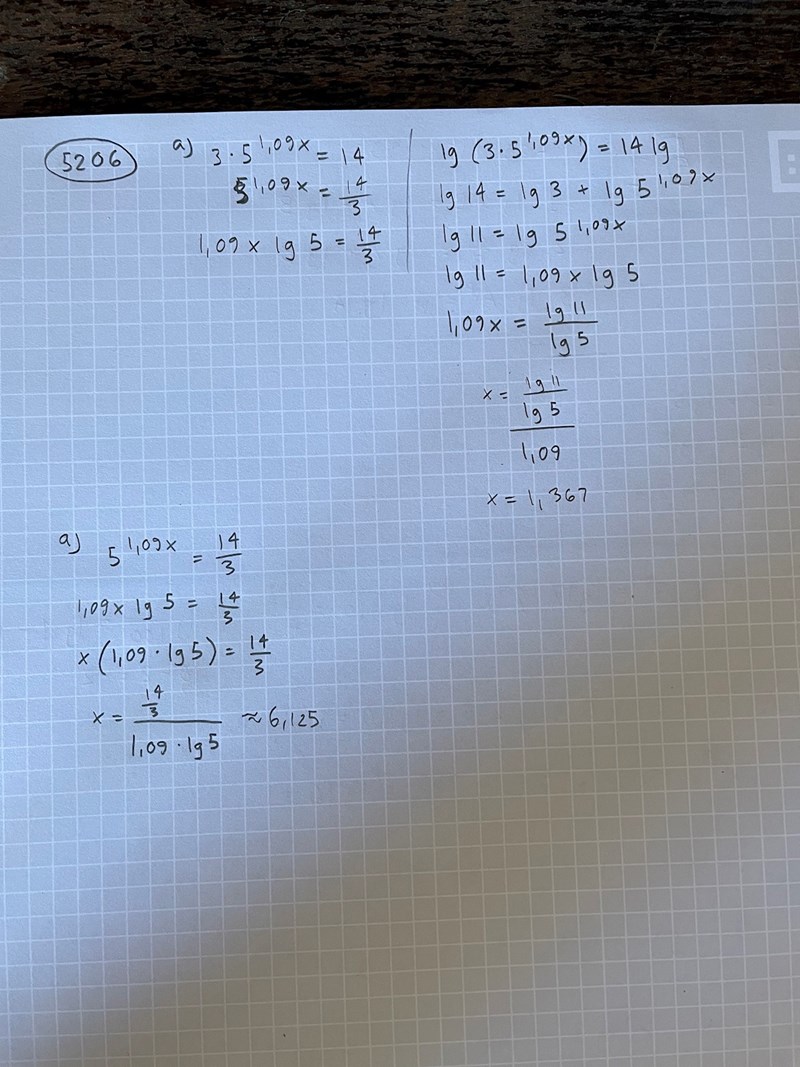 5206
a) 3·5^1,09x = 14
5^1,09x = 14/3
1,09x lg 5 = 14/3
lg (3·5^1,09x) = 14 lg
lg 14 = lg 3 + lg 5^1,09x
lg 11 = lg 5^1,09x
lg 11 = 1,09x lg 5
1,09x = lg 11/lg 5
x = (lg 11/lg 5)/1,09
x = 1,367
a) 5^1,09x = 14/3
1,09x lg 5 = 14/3
x (1,09·lg 5) = 14/3
x = (14/3)/(1,09·lg 5) ≈ 6,125